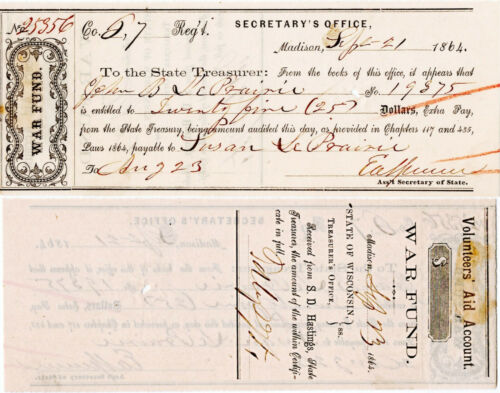 No. 25356
Co. 6, 7 Reg't.
SECRETARY'S OFFICE,
Madison, Sept 21 1864.
WAR FUND.
To the State Treasurer: From the books of this office, it appears that
John B LePrairie No. 19375
is entitled to Twenty five (25) Dollars, Extra Pay,
from the State Treasury, being amount audited this day, as provided in Chapters 117 and 435,
Laws 1864, payable to Susan LePrairie
To Aug 23
Ass't Secretary of State.
Volunteers' Aid Account.
$
WAR FUND.
Madison, Sep 23 1864.
STATE OF WISCONSIN,
TREASURER'S OFFICE, } ss.
Received from S. D. Hastings, State
Treasurer, the amount of the within Certifi-
cate in full.